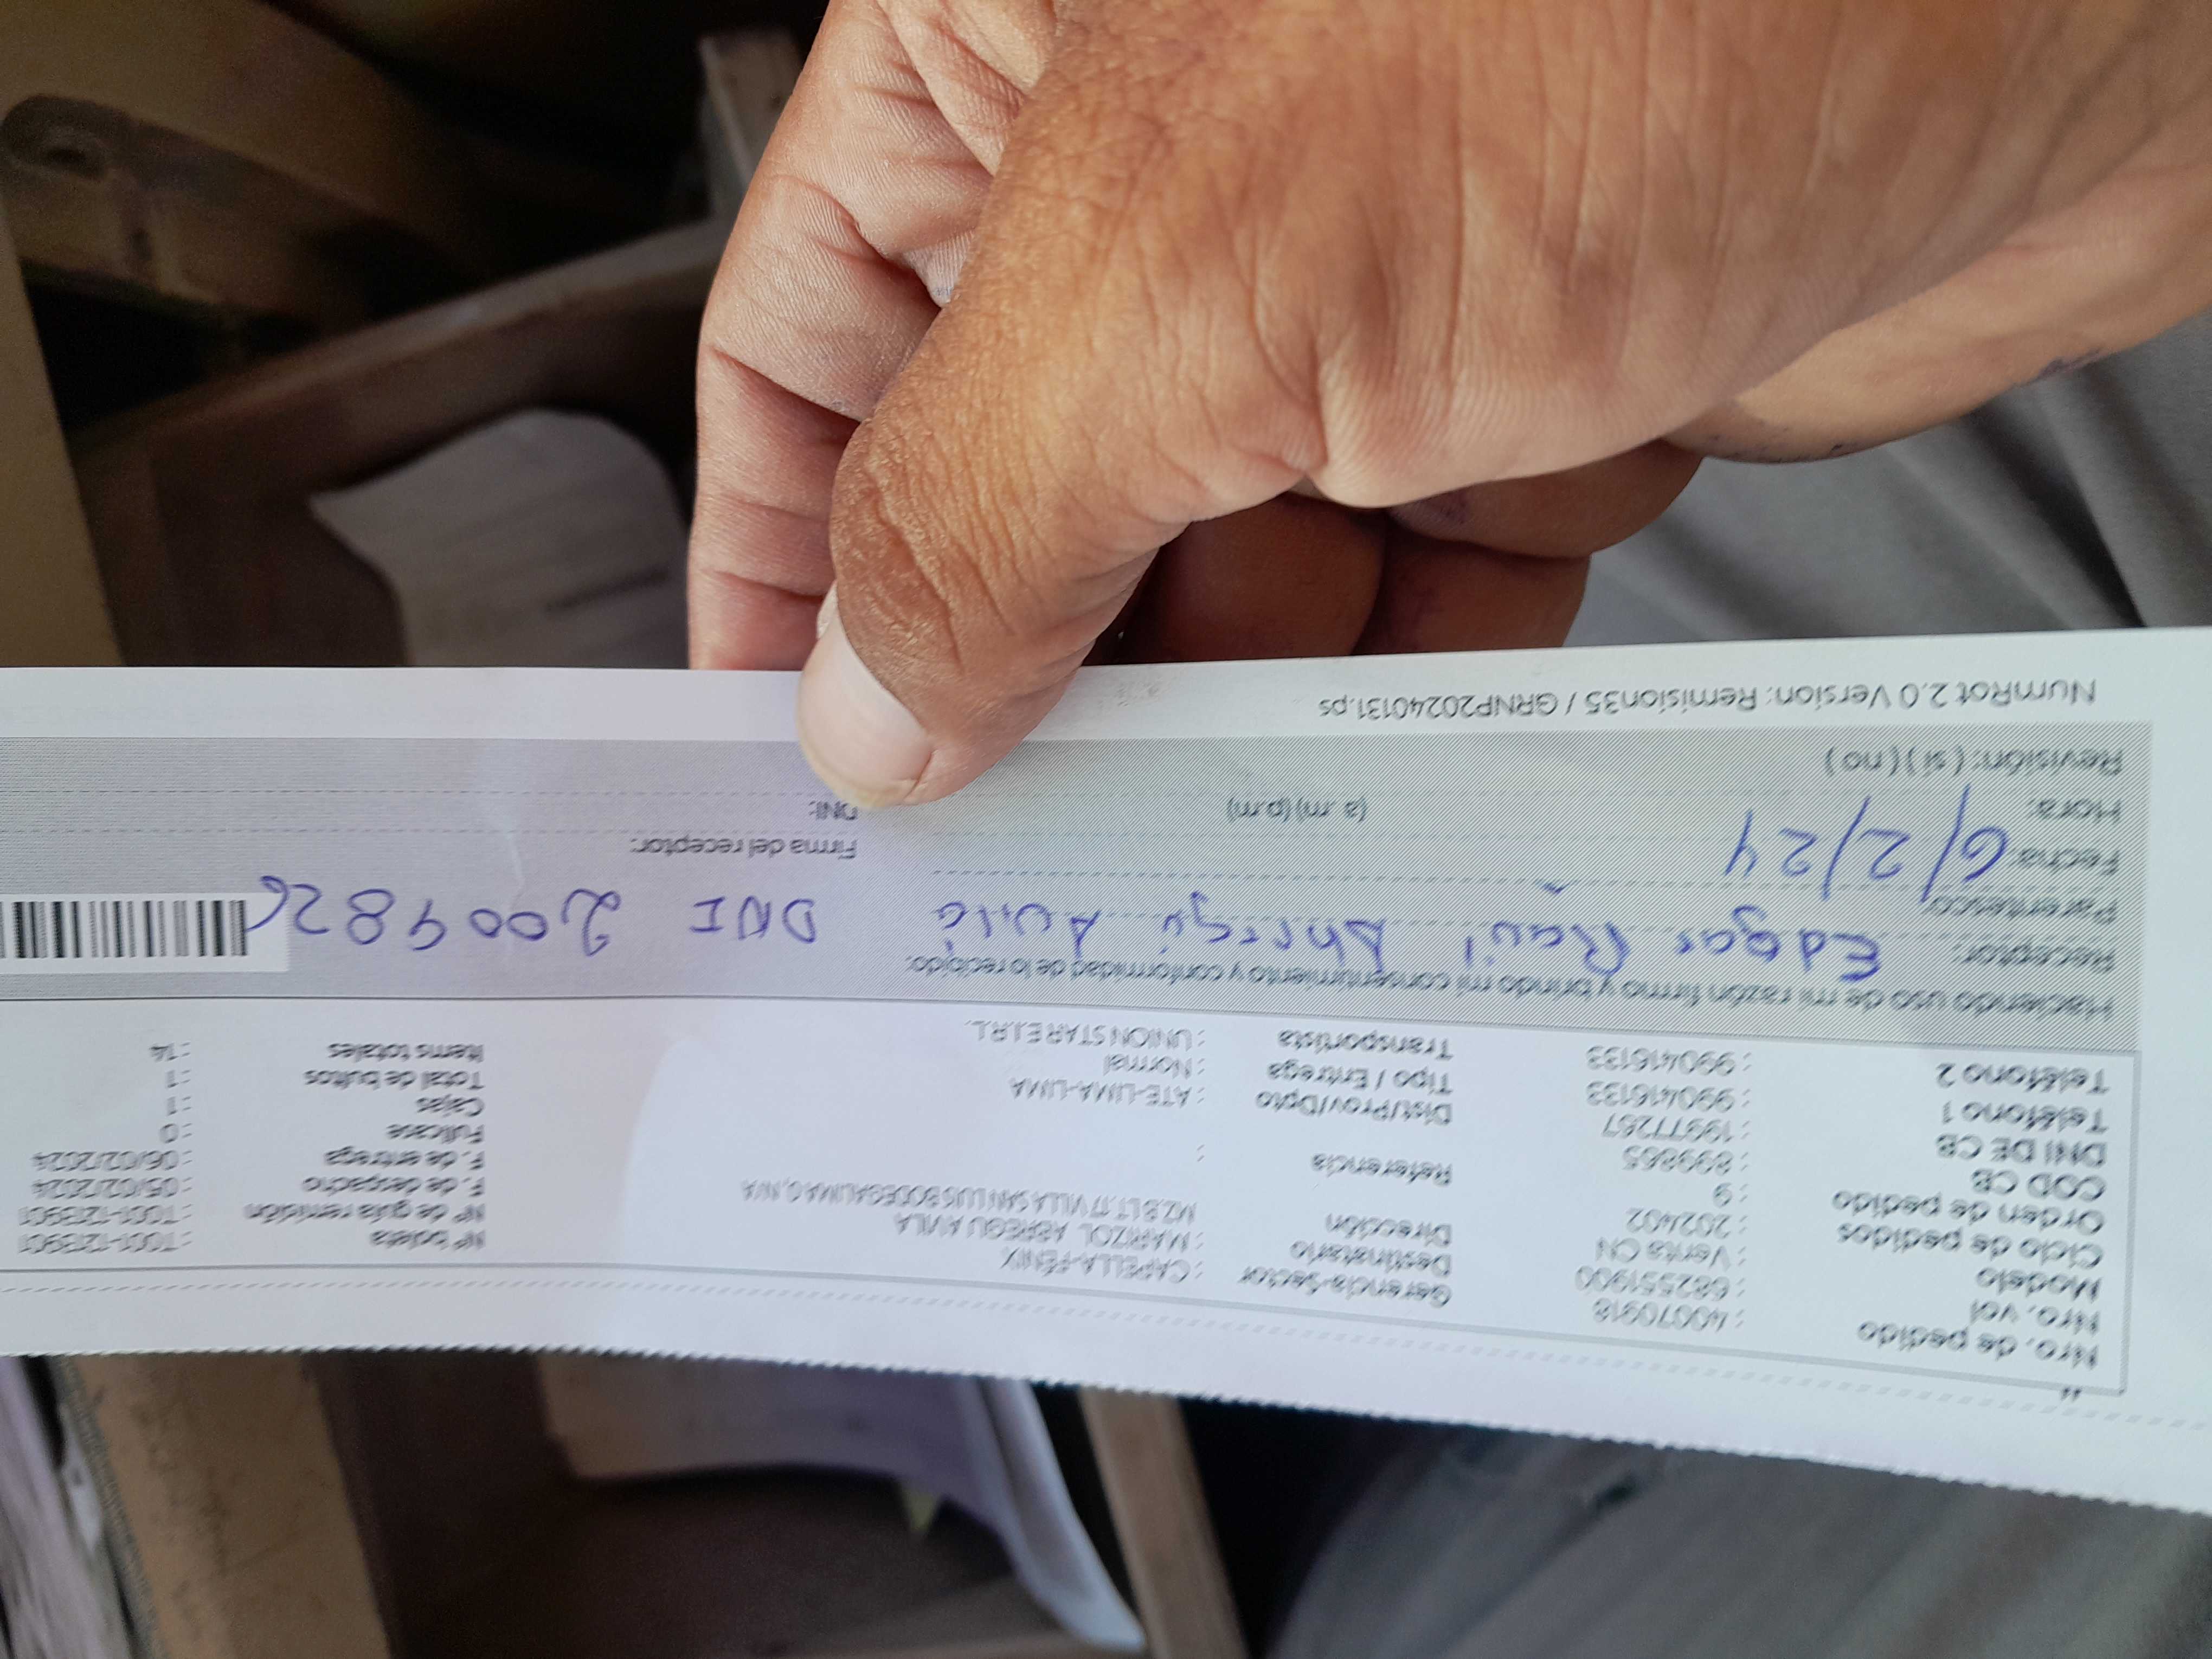 Nro. de pedido : 40070918 Gerencia-Sector : CAPELLA-FÉNIX Nº boleta : T001-1273901
Nro. vol : 682551900 Destinatario : MARIZOL ABREGU AVILA Nº de guía remisión : T001-1273901
Modelo : Venta CN Dirección MZ.B LT.17 VILLA SAN LUIS BODEGA LIMA F. de despacho : 05/02/2024
Ciclo de pedidos : 202402 F. de entrega : 06/02/2024
Orden de pedido : 9 Referencia : Fullcase : 0
COD CB : 899865 Dist/Prov/Dpto : ATE-LIMA-LIMA Cajas : 1
DNI DE CB : 19977287 Tipo / Entrega : Normal Total de bultos : 1
Teléfono 1 : 990416133 Transportista : UNION STAR E.I.R.L. Items totales : 14
Teléfono 2 : 990416133
Haciendo uso de mi razón firmo y brindo mi consentimiento y conformidad de lo recibido:
Receptor: Edgar Raúl Abregú Avila DNI 20049826
Parentesco:
Fecha: 6/2/24 Firma del receptor:
Hora: (a.m) (p.m) DNI:
Revisión: ( si ) ( no )
NumRot 2.0 Version: Remision35 / GRNP20240131.ps